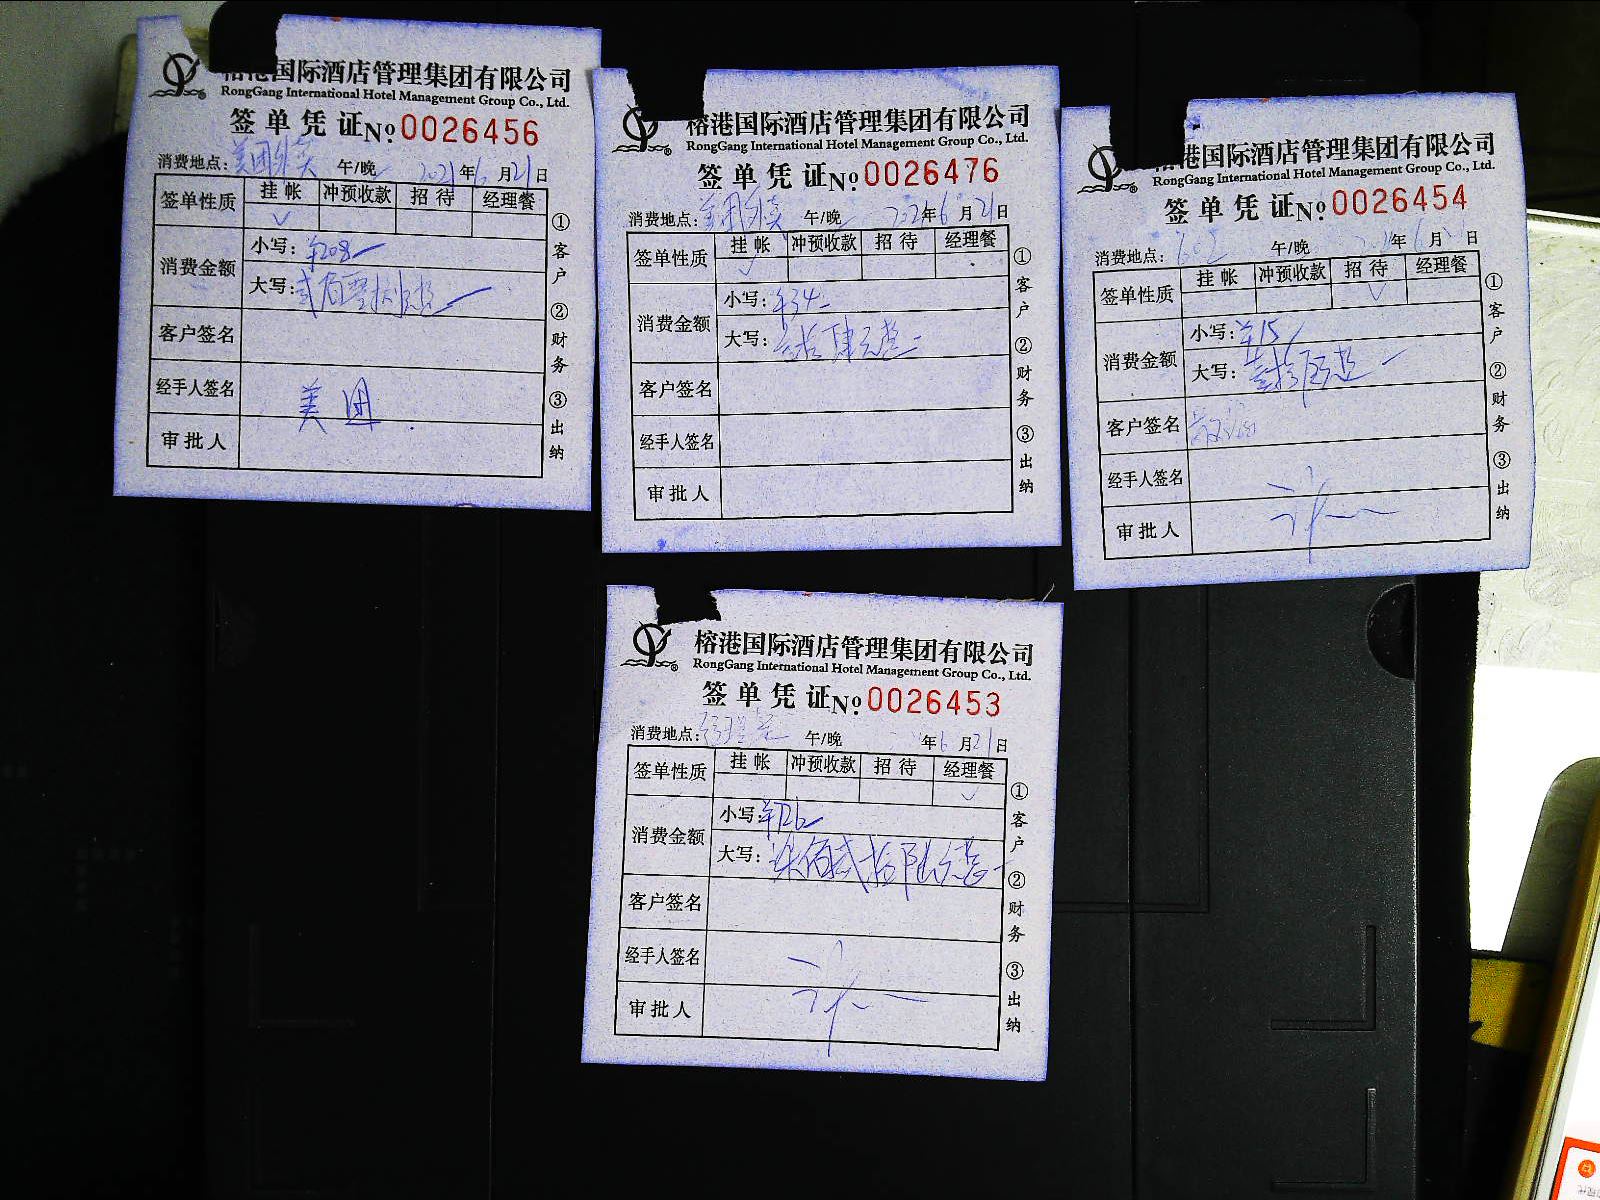 榕港国际酒店管理集团有限公司
RongGang International Hotel Management Group Co., Ltd.
签单凭证№0026456
消费地点：美团外卖 午/晚 2021年6月21日
签单性质 挂帐 冲预收款 招待 经理餐
✓
消费金额 小写：¥208
大写：贰佰零捌元整
客户签名
经手人签名 美团
审批人
①客户 ②财务 ③出纳
榕港国际酒店管理集团有限公司
RongGang International Hotel Management Group Co., Ltd.
签单凭证№0026476
消费地点：美团外卖 午/晚 202年6月21日
签单性质 挂帐 冲预收款 招待 经理餐
✓
消费金额 小写：¥34
大写：叁拾肆元整
客户签名
经手人签名
审批人
①客户 ②财务 ③出纳
榕港国际酒店管理集团有限公司
RongGang International Hotel Management Group Co., Ltd.
签单凭证№0026454
消费地点：602 午/晚 年6月日
签单性质 挂帐 冲预收款 招待 经理餐
✓
消费金额 小写：¥15
大写：壹拾伍元整
客户签名
经手人签名
审批人
①客户 ②财务 ③出纳
榕港国际酒店管理集团有限公司
RongGang International Hotel Management Group Co., Ltd.
签单凭证№0026453
消费地点：经理餐 午/晚 年6月21日
签单性质 挂帐 冲预收款 招待 经理餐
✓
消费金额 小写：¥726
大写：柒佰贰拾陆元整
客户签名
经手人签名
审批人
①客户 ②财务 ③出纳